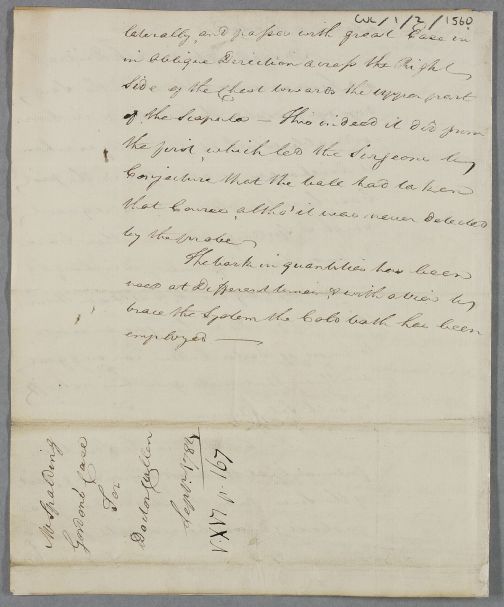 CUL/1/2/1560
laterally, and passes with great Ease in
in Oblique Direction across the Right
Side of the Chest towards the upper part
of the Scapula — This indeed it did from
the first, which led the Surgeons to
Conjecture that the ball had taken
that Course, altho' it was never Detected
by the probe
The bark in quantities has been
used at Different times & with a view to
brace the System the Cold bath has been
employed —
Mr Spalding
Gordon's Case
For
Doctor Cullen
Septr 1784
V. XVI N 167